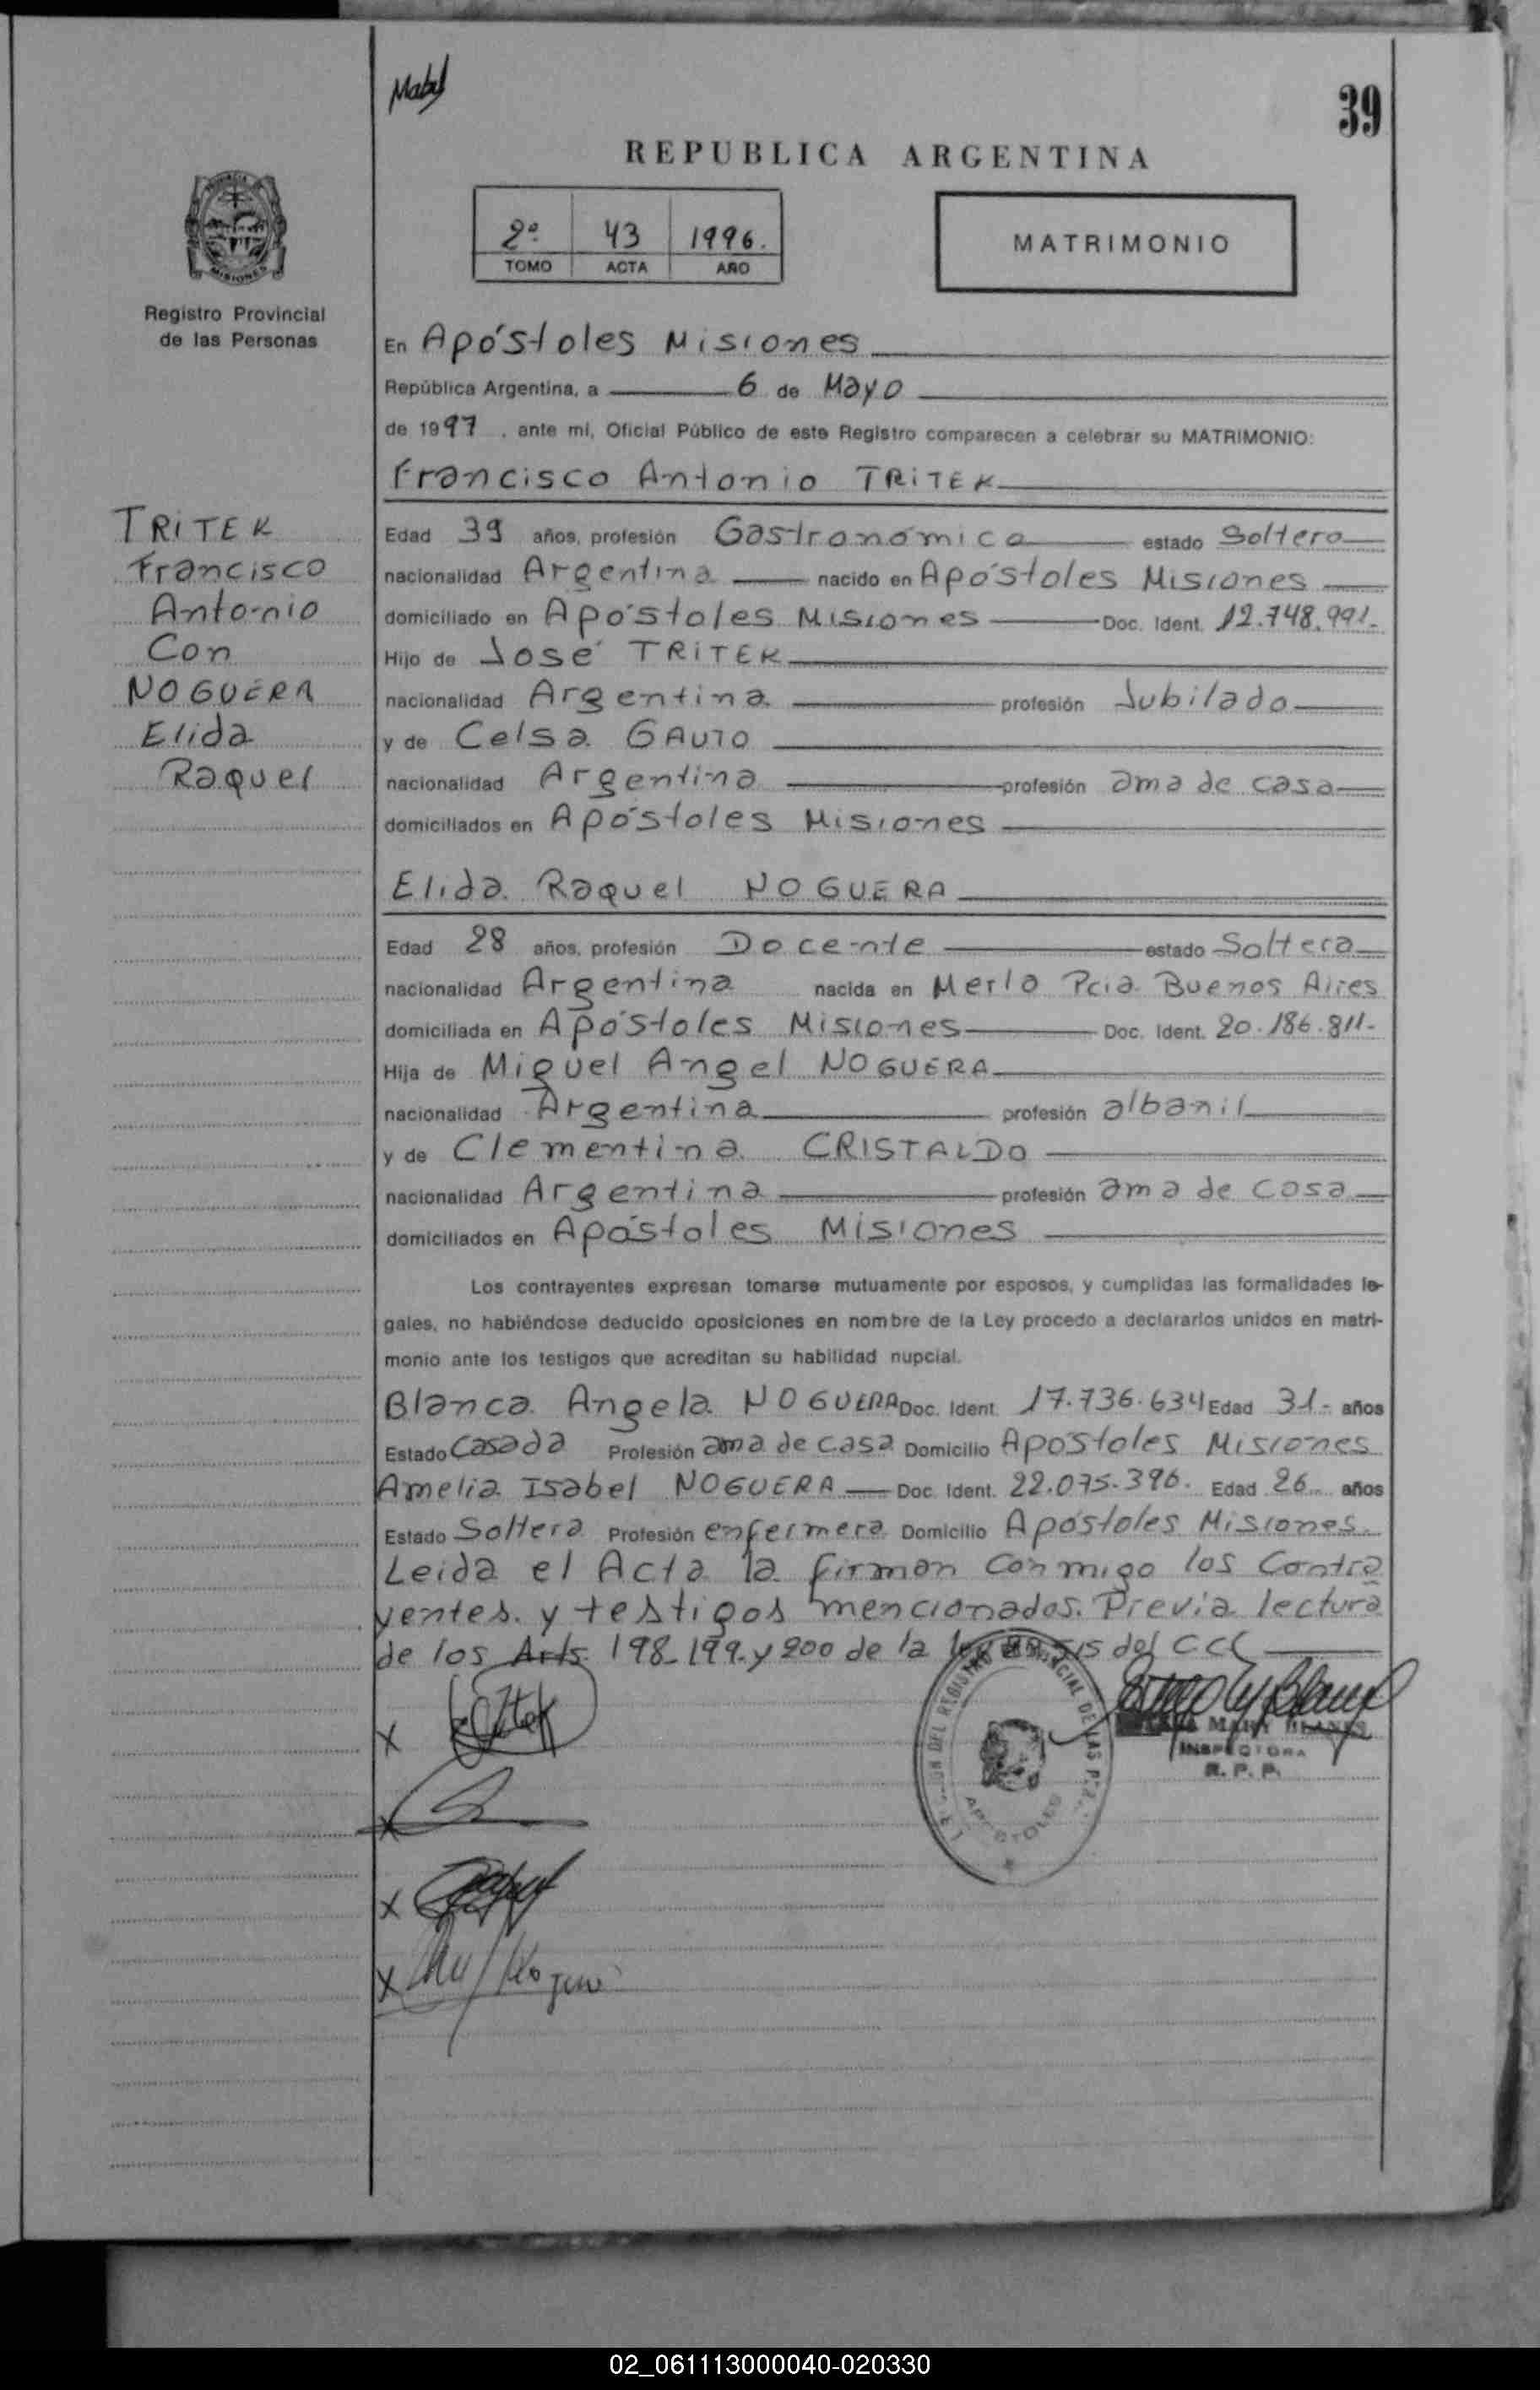 Mabel
39
REPUBLICA ARGENTINA
2º 43 1996.
TOMO ACTA AÑO
MATRIMONIO
PROVINCIA
MISIONES
Registro Provincial
de las Personas
En Apóstoles Misiones
República Argentina, a 6 de Mayo
de 1997, ante mí, Oficial Público de este Registro comparecen a celebrar su MATRIMONIO:
Francisco Antonio TRITEK
TRITEK
Francisco
Antonio
Con
NOGUERA
Elida
Raquel
Edad 39 años, profesión Gastronómico estado Soltero
nacionalidad Argentina nacido en Apóstoles Misiones
domiciliado en Apóstoles Misiones Doc. Ident. 12.748.991.
Hijo de José TRITEK
nacionalidad Argentina profesión Jubilado
y de Celsa GAUTO
nacionalidad Argentina profesión ama de casa
domiciliados en Apóstoles Misiones
Elida Raquel NOGUERA
Edad 28 años, profesión Docente estado Soltera
nacionalidad Argentina nacida en Merlo Pcia Buenos Aires
domiciliada en Apóstoles Misiones Doc. Ident. 20.186.811.
Hija de Miguel Angel NOGUERA
nacionalidad Argentina profesión albanil
y de Clementina CRISTALDO
nacionalidad Argentina profesión ama de casa
domiciliados en Apóstoles Misiones
Los contrayentes expresan tomarse mutuamente por esposos, y cumplidas las formalidades le-
gales, no habiéndose deducido oposiciones en nombre de la Ley procedo a declararlos unidos en matri-
monio ante los testigos que acreditan su habilidad nupcial.
Blanca Angela NOGUERA Doc. Ident. 17.736.634 Edad 31- años
Estado Casada Profesión ama de casa Domicilio Apóstoles Misiones
Amelia Isabel NOGUERA Doc. Ident. 22.075.396. Edad 26 años
Estado Soltera Profesión enfermera Domicilio Apóstoles Misiones.
Leida el Acta la firman conmigo los Contra
yentes y testigos mencionados. Previa lectura
de los Arts. 198-199-y 200 de la ley del CC
MARY BLANES
INSPECTORA
R. P. P.
DEL REGISTRO PROVINCIAL DE LAS
APOSTOLES
X
X
X
X
02_061113000040-020330